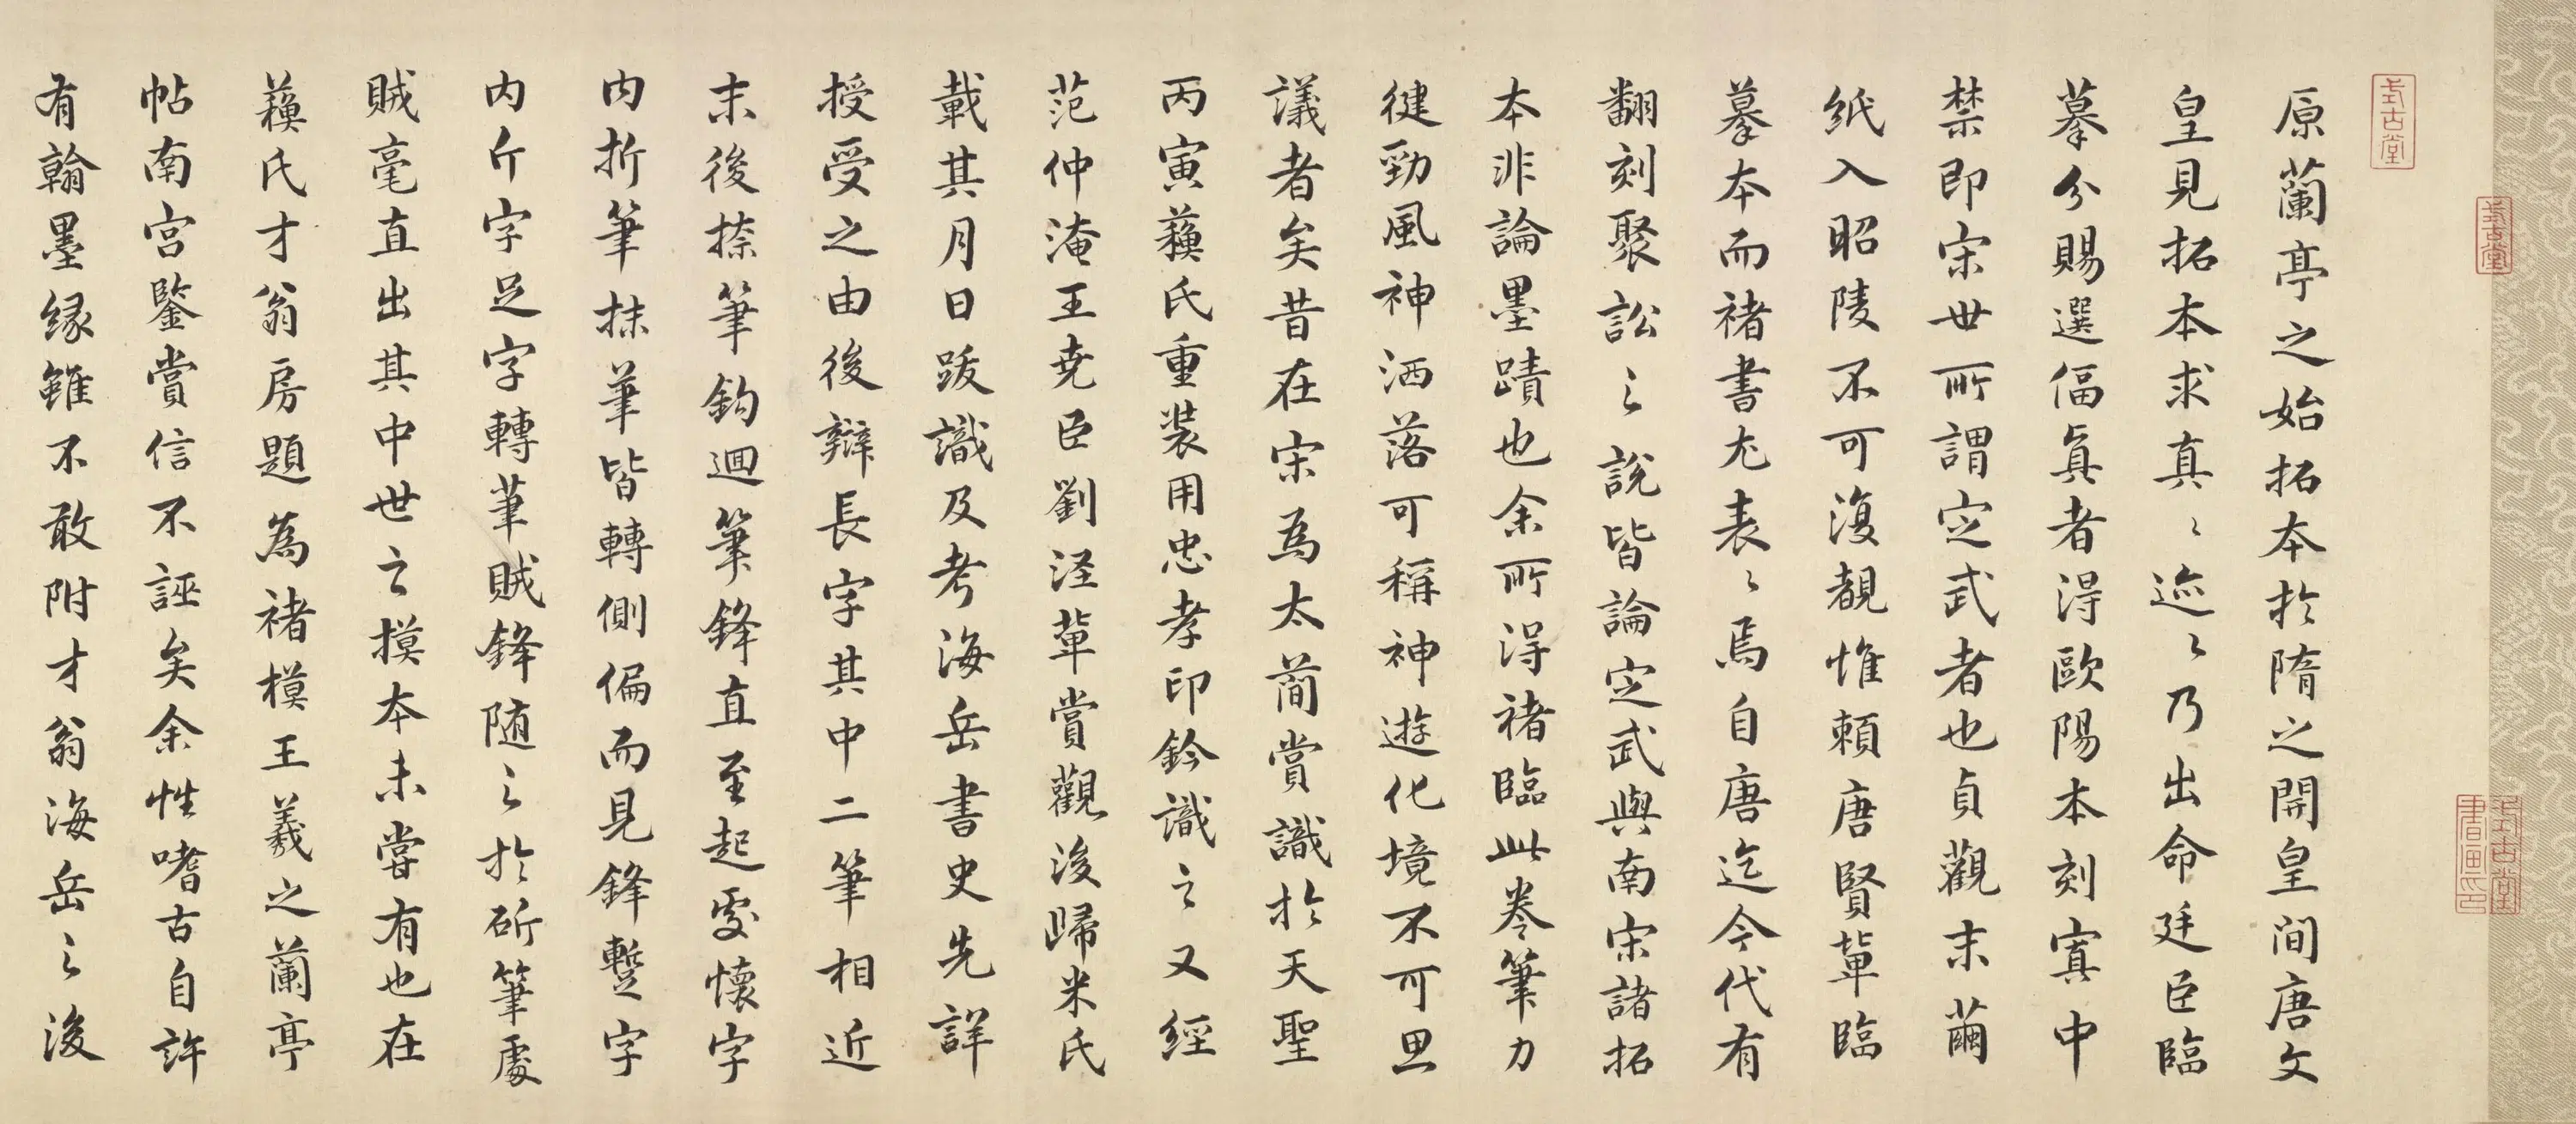 式古堂
式古堂
式古堂書畫印
原蘭亭之始拓本於隋之開皇間唐文
皇見拓本求真〻迹〻乃出命廷臣臨
摹分賜選偪真者得歐陽本刻寘中
禁即宋世所謂定武者也貞觀末繭
紙入昭陵不可復覩惟賴唐賢輩臨
摹本而褚書尤表〻焉自唐迄今代有
翻刻聚訟之說皆論定武與南宋諸拓
本非論墨蹟也余所得褚臨此卷筆力
健勁風神洒落可稱神遊化境不可思
議者矣昔在宋為太簡賞識於天聖
丙寅蘓氏重裝用忠孝印鈐識之又經
范仲淹王堯臣劉涇輩賞觀後歸米氏
載其月日跋識及考海岳書史先詳
授受之由後辯長字其中二筆相近
末後捺筆鈎迴筆鋒直至起處懷字
內折筆抹筆皆轉側偏而見鋒蹔字
內斤字足字轉筆賊鋒随之於斫筆處
賊毫直出其中世之摸本未嘗有也在
蘓氏才翁房題為褚模王羲之蘭亭
帖南宮鑒賞信不誣矣余性嗜古自許
有翰墨緣雖不敢附才翁海岳之後